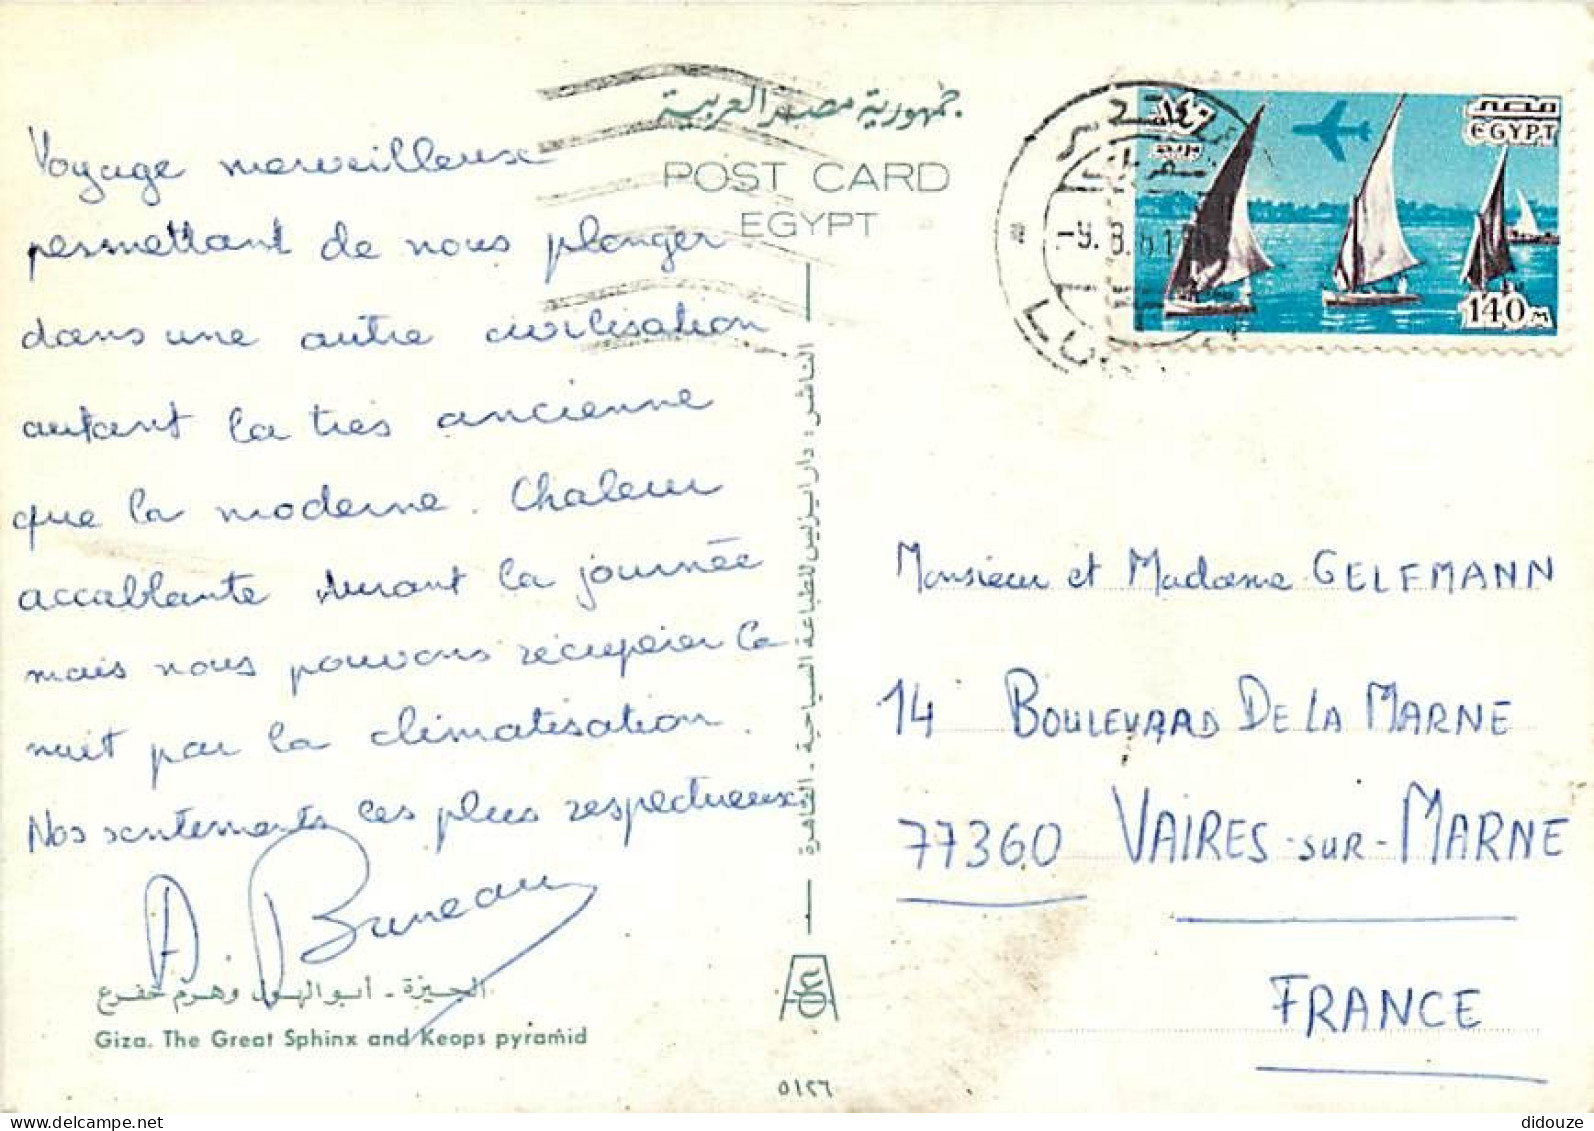 جمهورية مصر العربية
POST CARD
EGYPT
مصر
EGYPT
١٤٠
140 M
-9. 8. 81
Voyage merveilleux
permettant de nous plonger
dans une autre civilisation
autant la très ancienne
que la moderne. Chaleur
accablante durant la journée
mais nous pouvons récupérer la
nuit par la climatisation.
Nos sentements les plus respectueux
A. Buneau
الناشر : دار ايزيس للطباعة السياحية - القاهرة
Monsieur et Madame GELFMANN
14 BOULEVARD DE LA MARNE
77360 VAIRES-SUR-MARNE
FRANCE
الجيزة - أبو الهول وهرم خفرع
Giza. The Great Sphinx and Keops pyramid
٥١٢٦
didouze